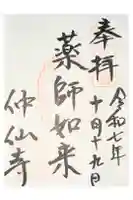 奉拝
令和七年
十月十九日
薬師如来
仲仙寺